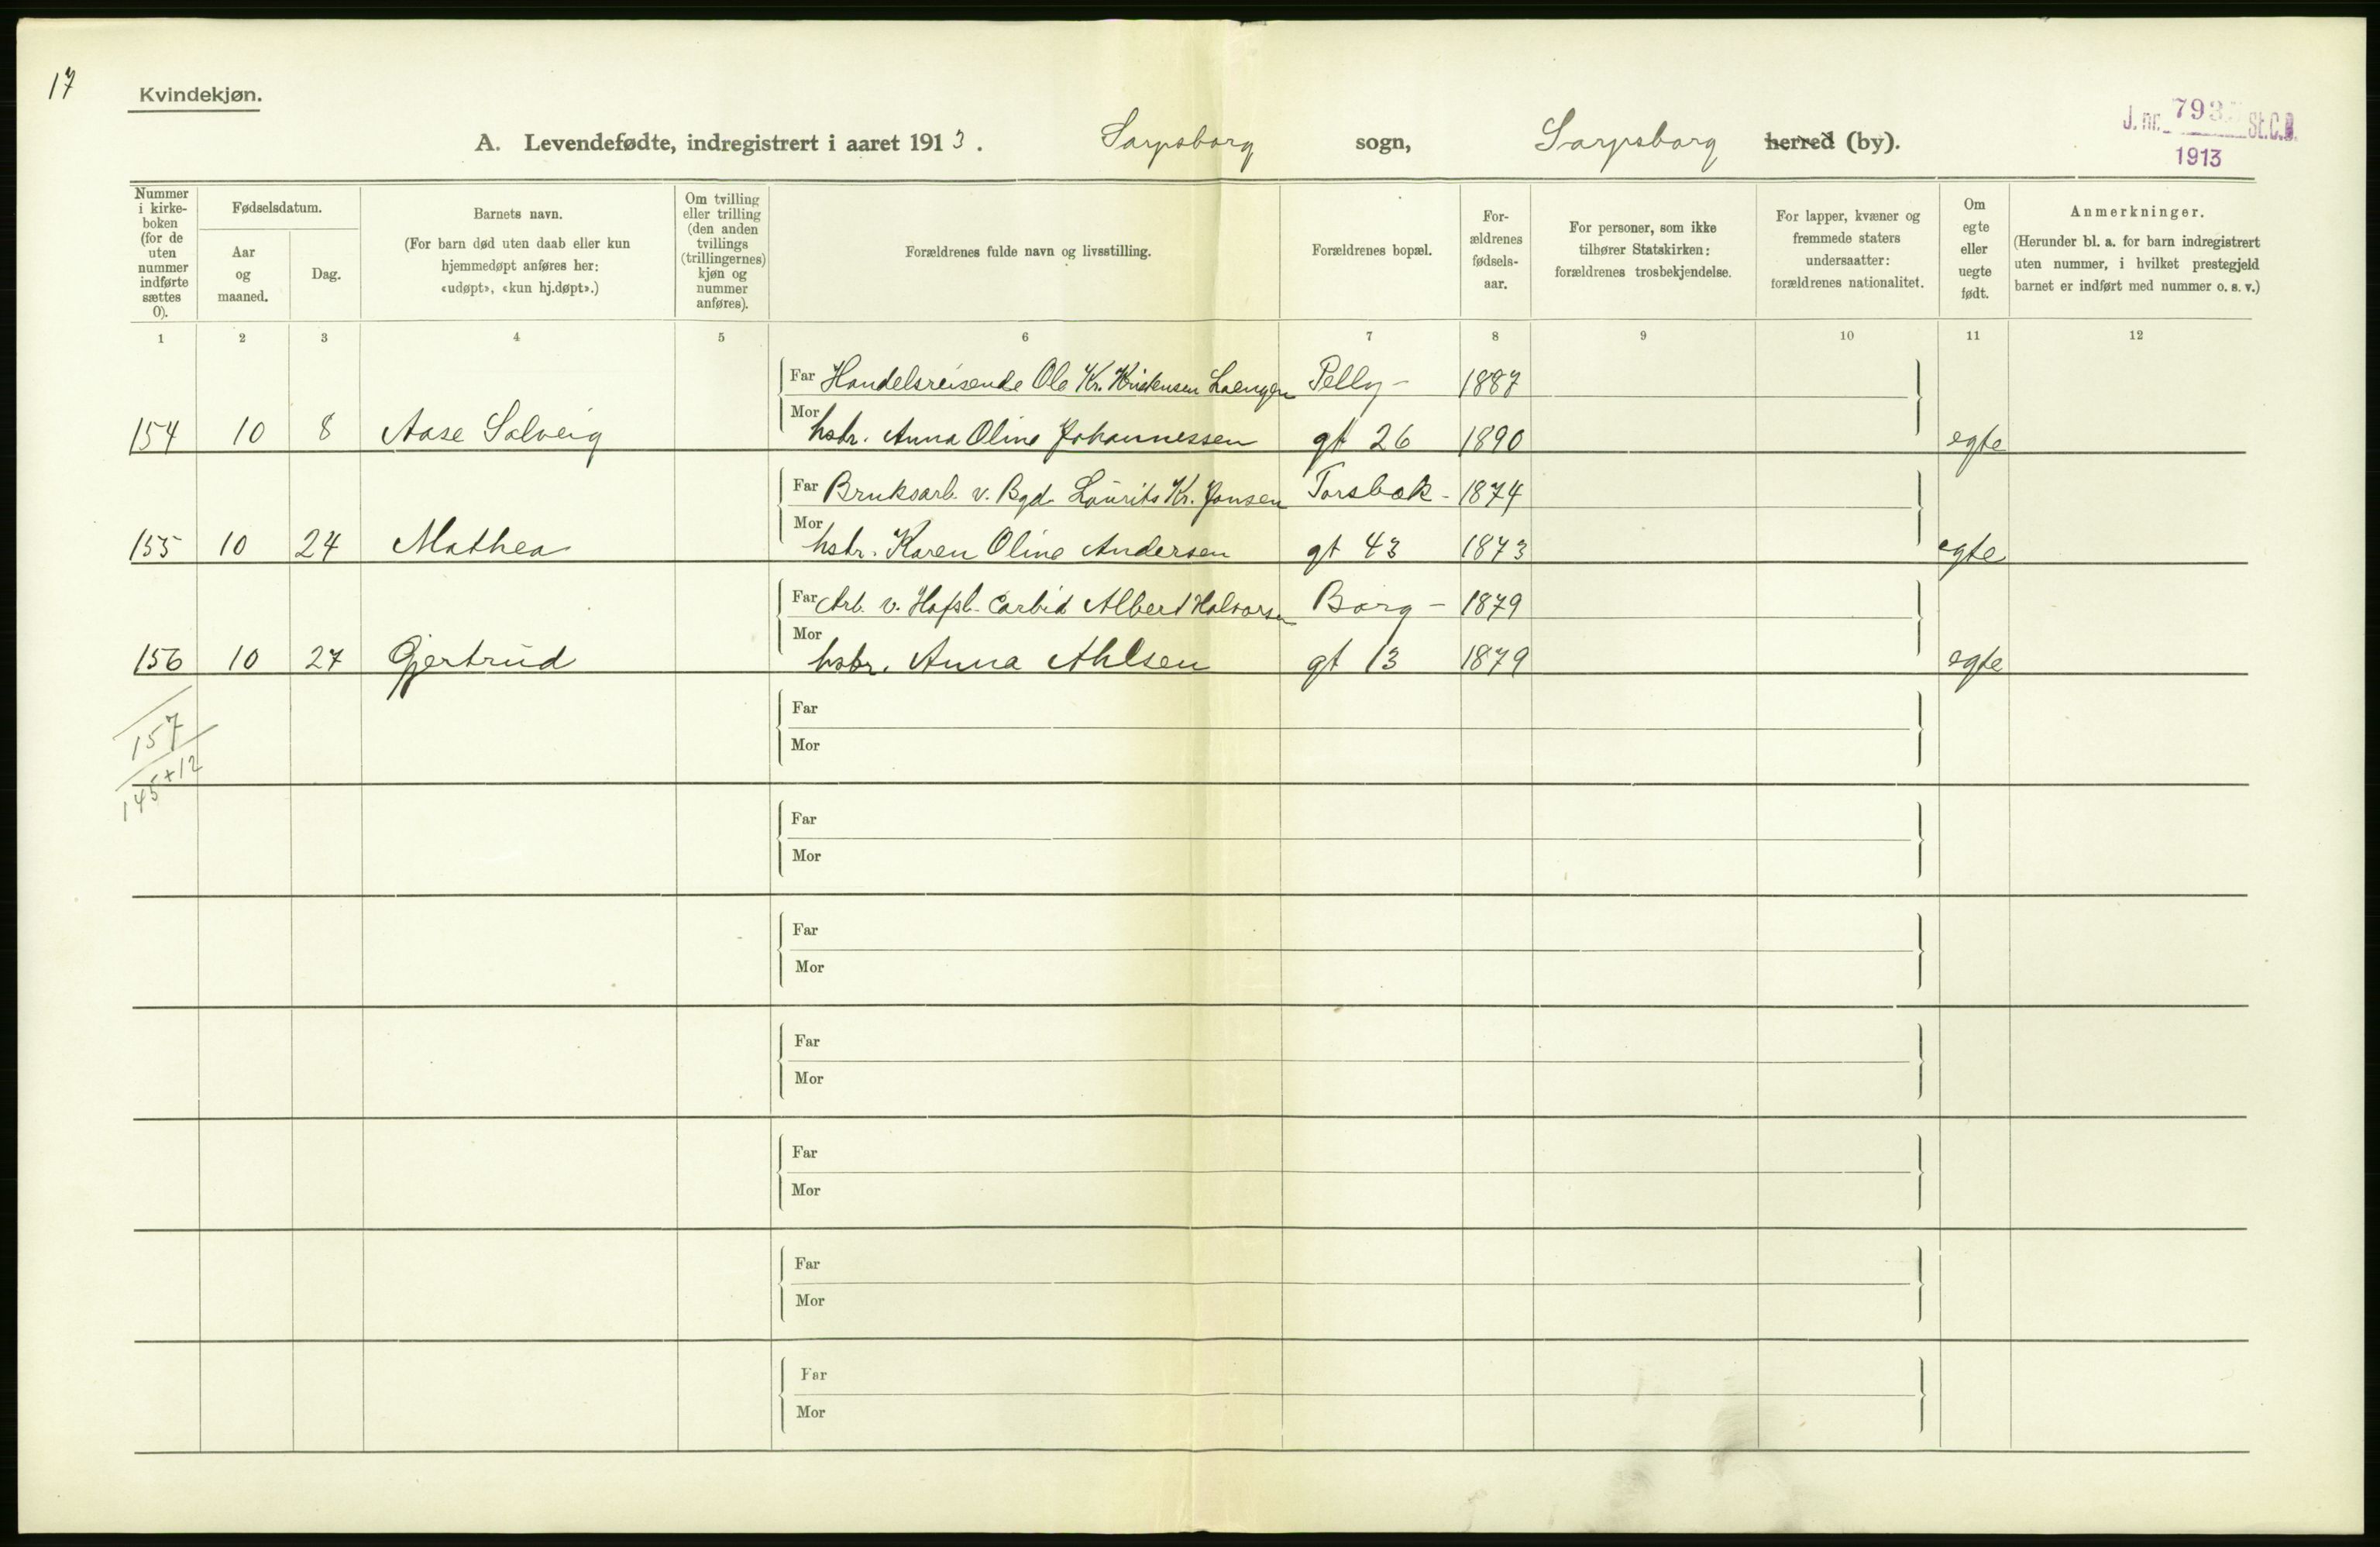 17
Kvindekjøn.
A. Levendefødte, indregistrert i aaret 1913. Sarpsborg sogn, Sarpsborg herred (by).
J. nr. 793 St.C.B.
1913
Nummer i kirke-boken (for de uten nummer indførte sættes 0).
Fødselsdatum.
Aar og maaned.
Dag.
Barnets navn.
(For barn død uten daab eller kun
hjemmedøpt anføres her:
«udøpt», «kun hj.døpt».)
Om tvilling
eller trilling
(den anden
tvillings
(trillingernes)
kjøn og
nummer
anføres).
Forældrenes fulde navn og livsstilling.
Forældrenes bopæl.
For-
ældrenes
fødsels-
aar.
For personer, som ikke
tilhører Statskirken:
forældrenes trosbekjendelse.
For lapper, kvæner og
fremmede staters
undersaatter:
forældrenes nationalitet.
Om
egte
eller
uegte
født.
Anmerkninger.
(Herunder bl. a. for barn indregistrert
uten nummer, i hvilket prestegjeld
barnet er indført med nummer o. s. v.)
1 2 3 4 5 6 7 8 9 10 11 12
Far Handelsreisende Ole Kr. Kristensen Laengen Pelly- 1887
154 10 8 Aase Solveig Mor hstr. Anna Oline Johannessen gt 26 1890 egte
Far Bruksarb. v. Bgd. Laurits Kr. Jonsen Torsbæk- 1874
155 10 24 Mathea Mor hstr. Karen Oline Andersen gt 43 1873 egte
Far Arb. v. Hafsl. Carbid Albert Halvorsen Borg- 1879
156 10 27 Gjertrud Mor hstr. Anna Ahlsen gt 13 1879 egte
157
145+12
Far
Mor
Far
Mor
Far
Mor
Far
Mor
Far
Mor
Far
Mor
Far
Mor